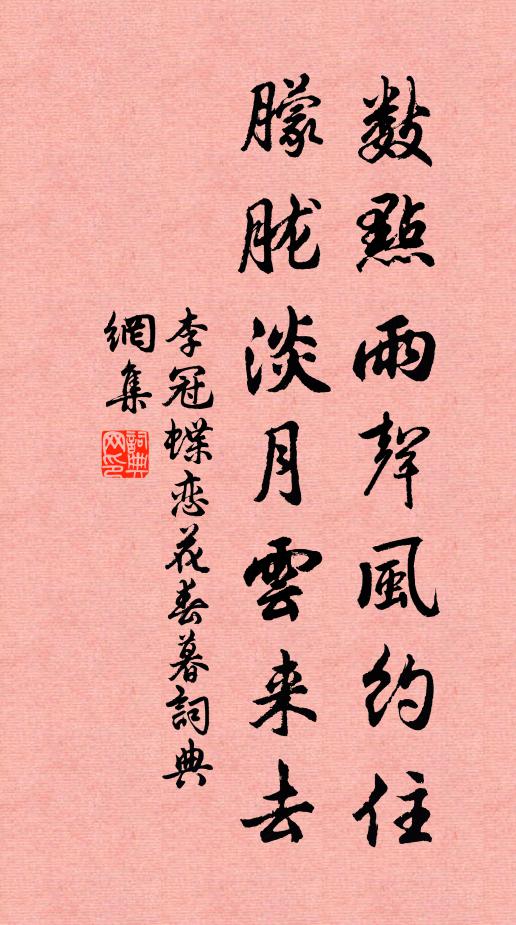 數點雨聲風約住
朦朧淡月雲来去
李冠蝶恋花春暮詞典
網集
詞典網印